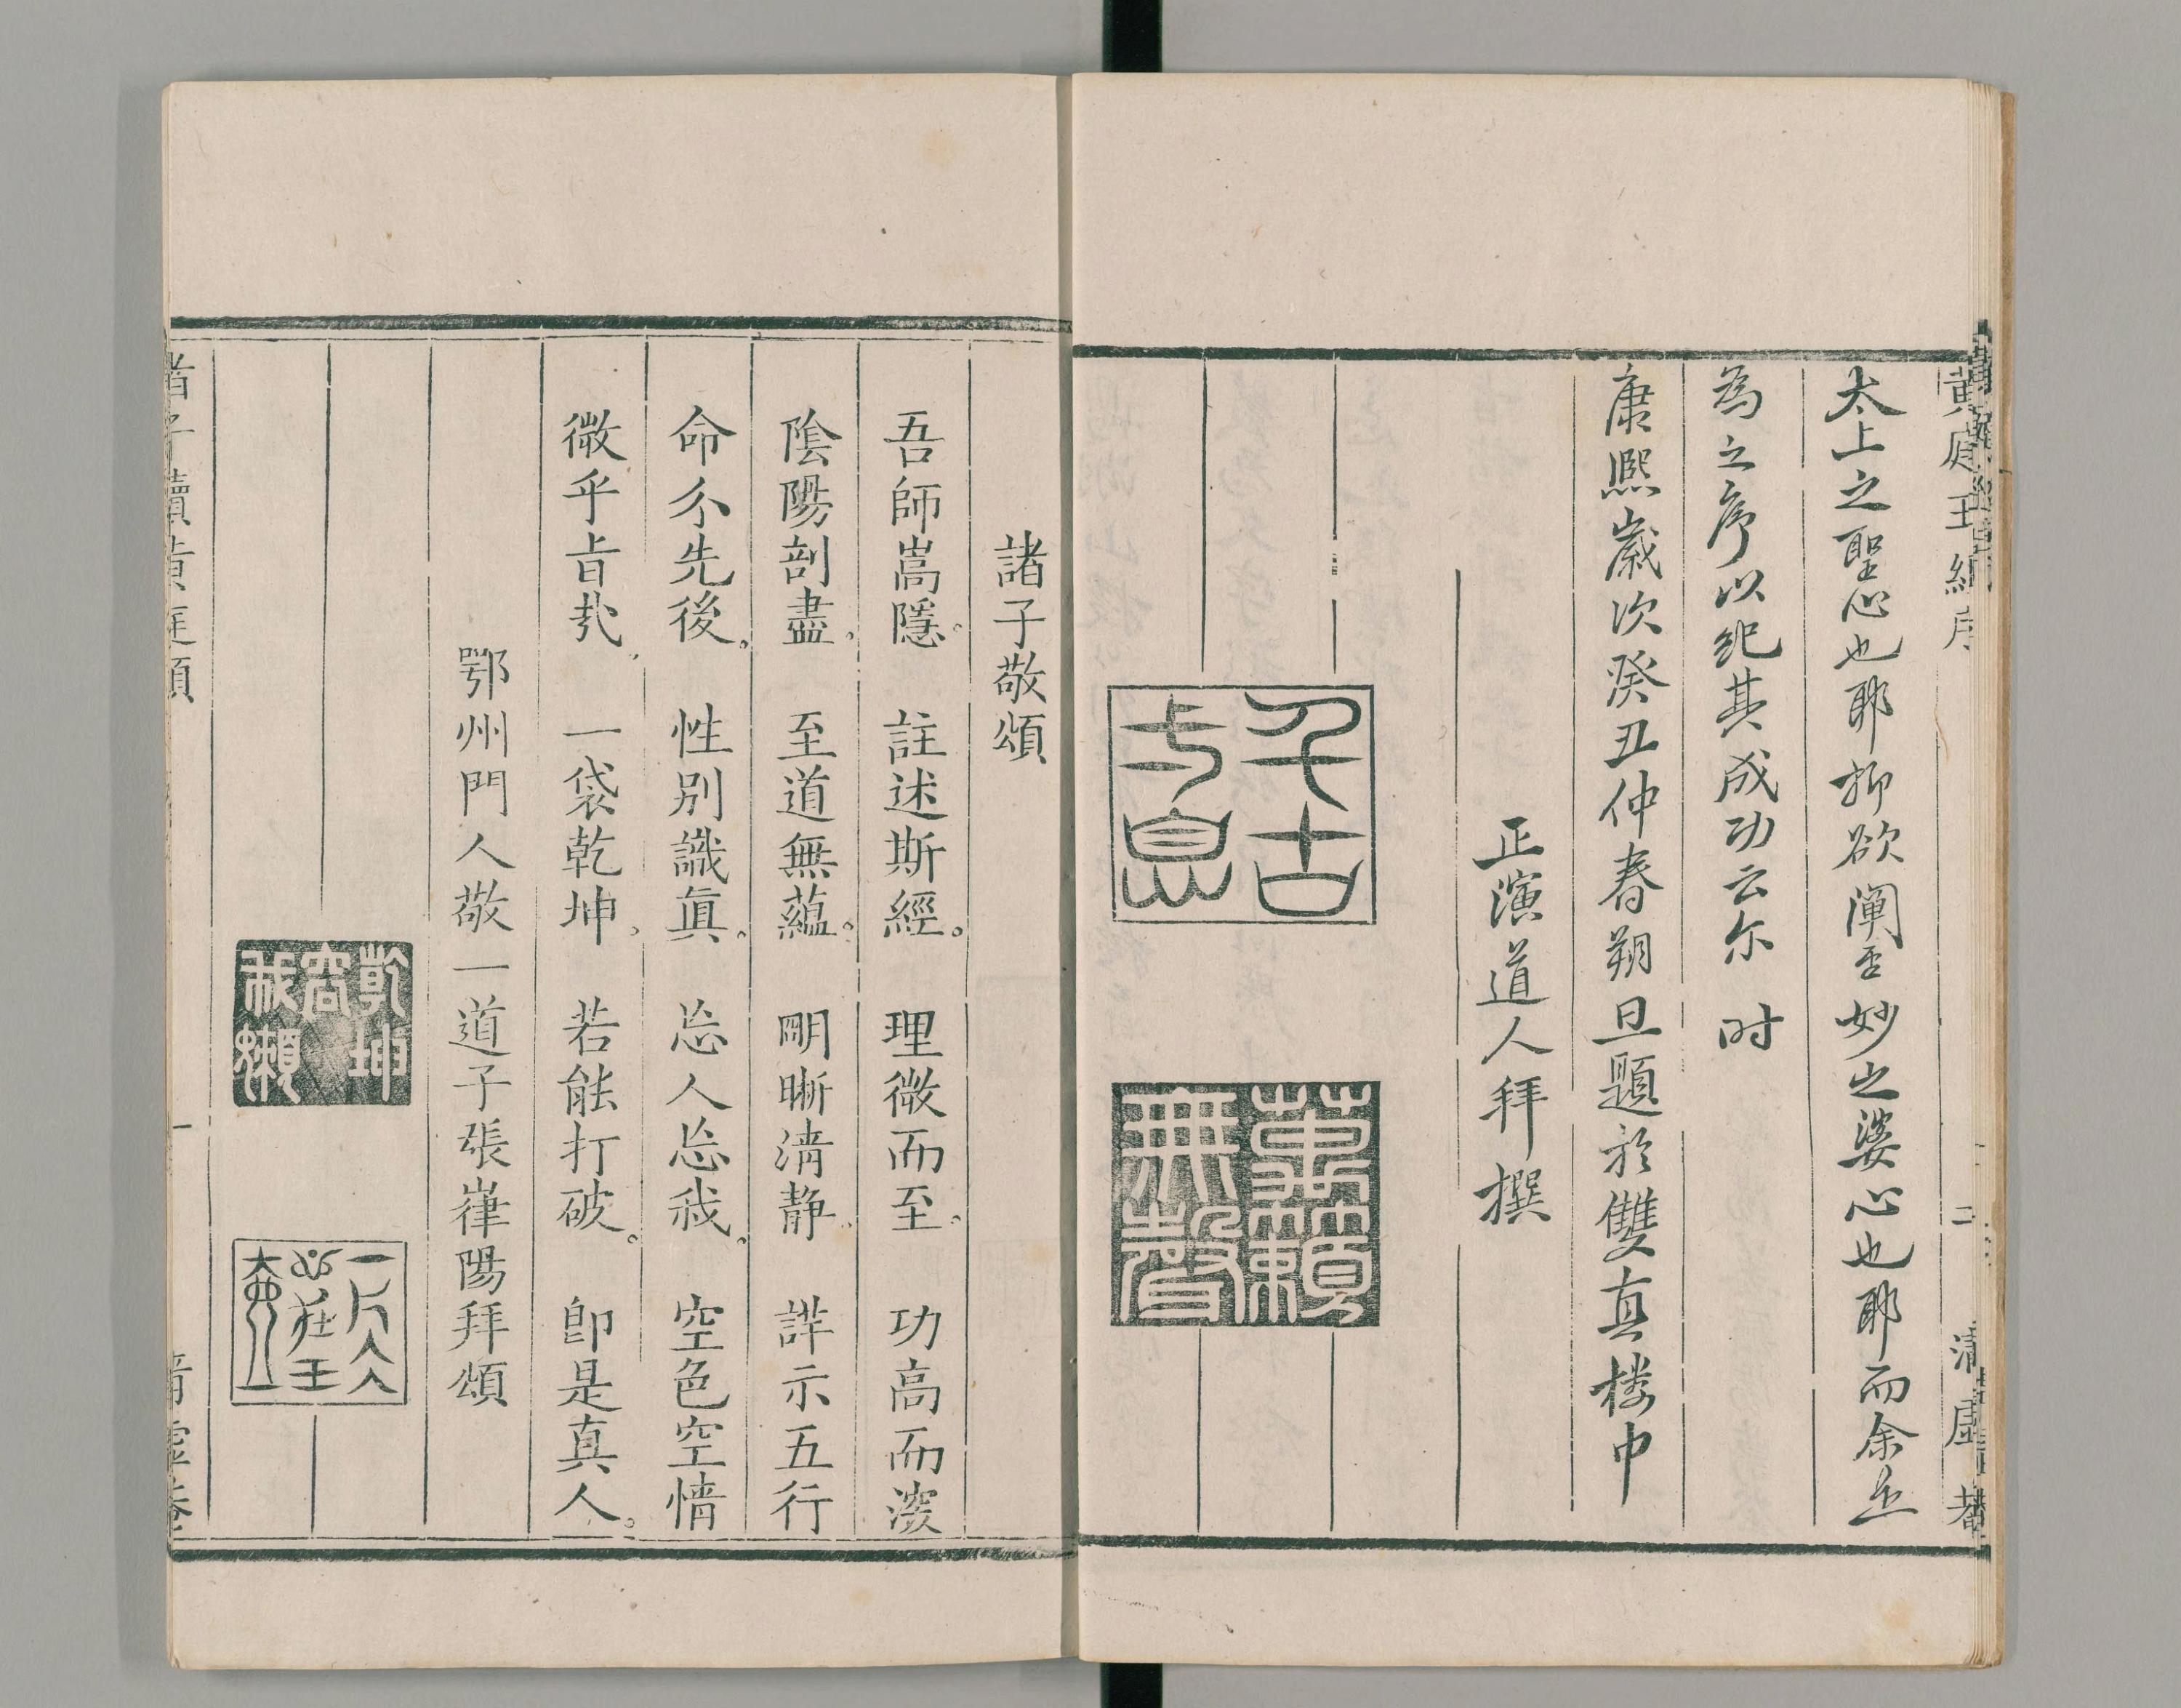 黃庭玉經序 清虛菴
太上之聖心也耶抑欲闡妙之婆心也耶而余
為之序以紀其成功云尔 时
康熙歲次癸丑仲春朔旦題於雙真楼中
正演道人拜撰
千古
萬籟無聲
諸子敬頌
吾師嵩隱。註述斯經。理微而至。功高而深
陰陽剖盡。至道無蘊。明晰清静。詳示五行
命分先後。性別識眞。忘人忘我。空色空情
微乎旨哉。一袋乾坤。若能打破。即是真人。
鄂州門人敬一道子張崋陽拜頌
乾坤容我懶
諸子讀黃庭頌 一 清虛菴